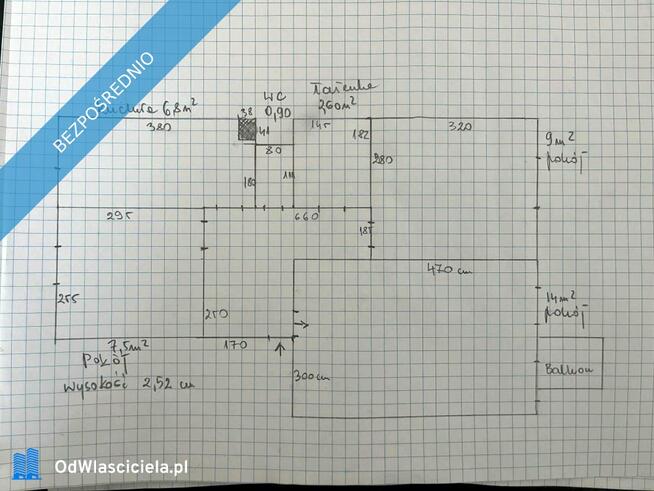 BEZPOŚREDNIO
Kuchnia 6,8 m²
WC
0,90
Łazienka
2,60 m²
380
38
41
80
145
182
320
9 m²
pokój
280
180
111
295
660
185
470 cm
14 m²
pokój
255
250
7,5 m²
170
Pokój
300 cm
Balkon
wysokość 2,52 cm
OdWlasciciela.pl